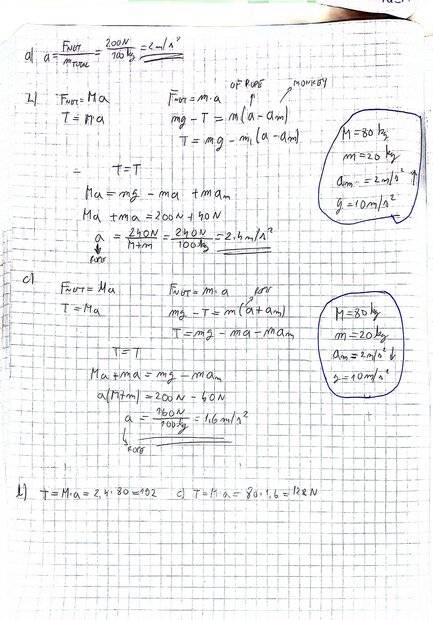 a) a = F_NET / m_TOTAL = 200N / 100kg = 2m/s²
b) F_NET = Ma F_NET = m·a OF ROPE MONKEY
T = Ma mg - T = m(a - am)
T = mg - m(a - am)
T = T
Ma = mg - ma + mam
Ma + ma = 200N + 40N
a = 240N / M+m = 240N / 100kg = 2.4m/s²
ROPE
M = 80kg
m = 20kg
am = 2m/s² ↑
g = 10m/s²
c) F_NET = Ma F_NET = m·a ROPE
T = Ma mg - T = m(a + am)
T = mg - ma - mam
T = T
Ma + ma = mg - mam
a(M+m) = 200N - 40N
a = 160N / 100kg = 1,6m/s²
ROPE
M = 80kg
m = 20kg
am = 2m/s² ↓
g = 10m/s²
b) T = M·a = 2,4·80 = 192 c) T = M·a = 80·1,6 = 128N